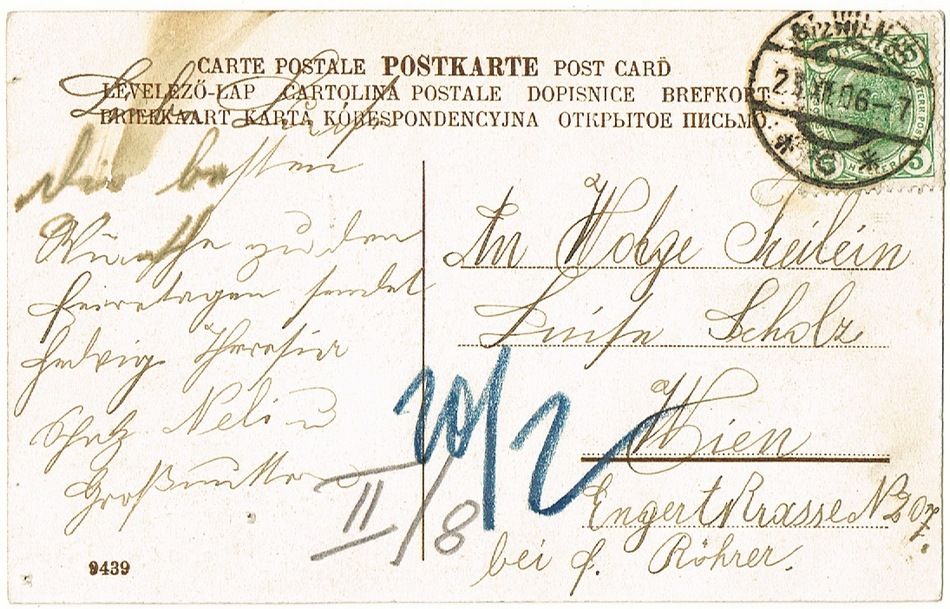 CARTE POSTALE POSTKARTE POST CARD
LEVELEZÖ-LAP CARTOLINA POSTALE DOPISNICE BREFKORT
BRIEFKAART KARTA KORESPONDENCYJNA ОТКРЫТОЕ ПИСЬМО
Liebe Luise
die besten
Wünsche zu den
Feiertagen sendet
Hedwig Theresia
Nelli u
Großmutter
An Wolge Freilein
Luise Scholz
Wien
Engertstrasse No
bei f. Röhrer.
20/2
II/8
9439
WIEN
06-7
5
5